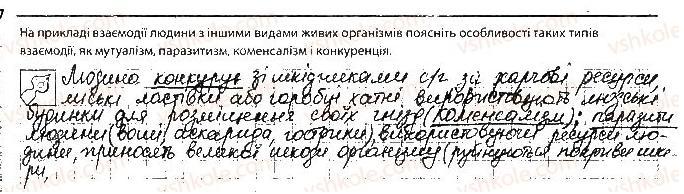 На прикладі взаємодії людини з іншими видами живих організмів поясніть особливості таких типів
взаємодії, як мутуалізм, паразитизм, коменсалізм і конкуренція.
Людина конкурує зі шкідниками с/г за харчові ресурси,
міські ластівки або горобці хатні використовують людські
будинки для розміщення своїх гнізд (коменсалізм); паразити
людини (воші, аскарида, гострики), використовуючи ресурси лю-
дини, приносять великої шкоди організму (руйнуються покриви шкі-
ри.